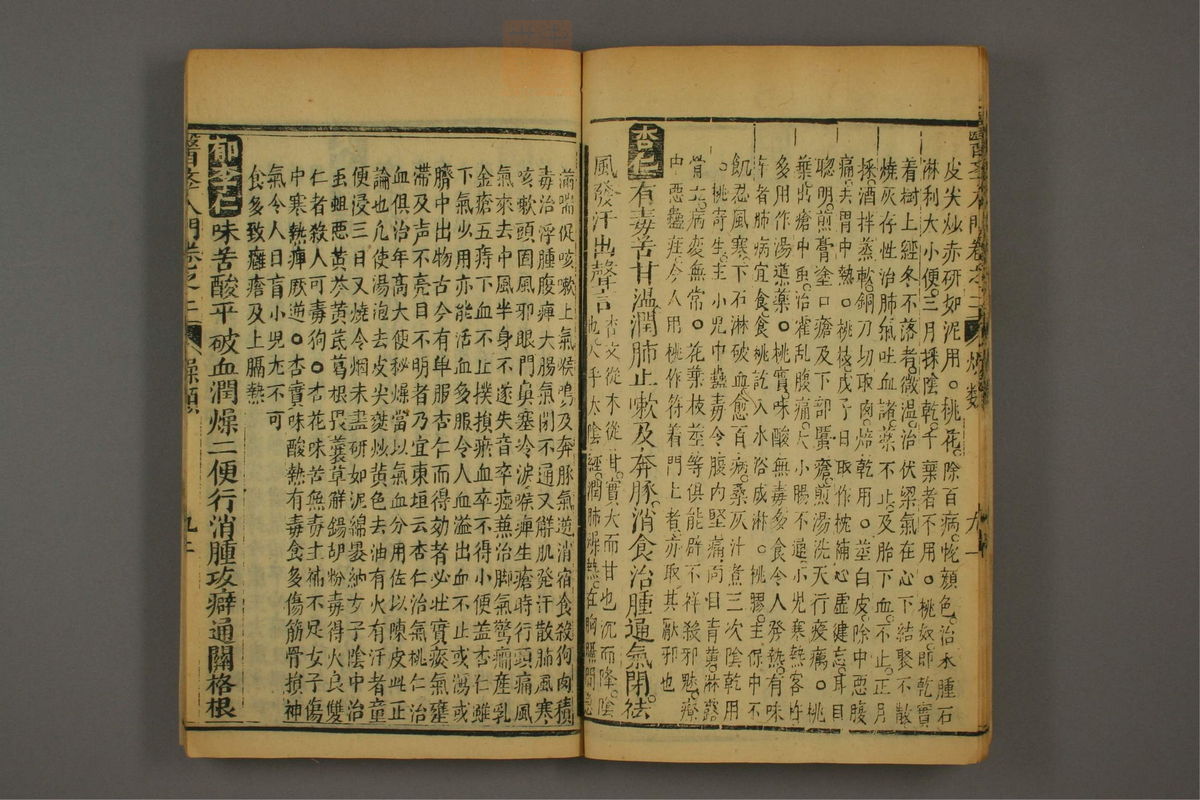 皮尖炒赤研如泥用桃花除百病悅顏色治水腫石
淋利大小便三月採陰乾千葉者不用桃奴即乾實
着樹上經冬不落者微溫治伏梁氣在心下結聚不散
燒灰存性治肺氣吐血諸藥不止及胎下血不止正月
採酒拌蒸軟銅刀切取肉焙乾用莖白皮除中惡腹
痛去胃中熱桃枝戊子日取作枕補心虛健忘耳目
聰明煎膏塗口瘡及下部䘌瘡煎湯洗天行疫癘桃
葉出瘡中虫治霍亂腹痛大小腸不通小兒寒熱客忤
多用作湯導藥桃實味酸無毒多食令人發熱有味
許者肺病宜食食桃訖入水浴成淋桃膠主保中不
飢忍風寒下石淋破血愈百病桑灰汁煮三次陰乾用
桃寄生主小兒中蠱毒令腹內堅痛向目青黃淋露
骨立病変無常花葉枝莖等俱能辟不祥殺邪魅療
中惡蠱疰今人用桃作符着門上者亦取其厭邪也
杏仁有毒苦甘溫潤肺止嗽及奔豚消食治腫通氣閉袪
風發汗出聲音
杏文從木從甘實大而甘也沉而降陰
也入手太陰經潤肺燥熱在胸膈間急
滿喘促咳嗽上氣喉鳴及奔豚氣逆消宿食殺狗肉積
毒治浮腫腹痺大腸氣閉不通又觧肌発汗散肺風寒
咳嗽頭面風邪眼鼻塞冷淚喉痺生瘡時行頭痛風
氣來去中風半身不遂失音卒瘂兼治脚氣驚癇産乳
金瘡五痔下血不止撲損瘀血卒不得小便盖杏仁雖
下氣少用亦能活血多服令人血溢出血不止或瀉或
臍中出物古今有单服杏仁而得効者必壮實痰氣壅
滯及声不亮目不明者乃宜東垣云杏仁治氣桃仁治
血俱治年高大便秘燥當以氣血分用佐以陳皮此正
論也凡使湯泡去皮尖麩炒黄色去油有火有汗者童
便浸三日又燒令烟未盡研如泥綿裹納女子陰中治
虫蛆惡黄芩黄芪葛根畏蘘草觧錫胡粉毒得火良雙
仁者殺人可毒狗杏花味苦無毒主補不足女子傷
中寒熱痺厥逆杏實味酸熱有毒食多傷筋骨損神
氣令人目盲小兒尤不可
食多致癰瘡及上膈熱
郁李仁味苦酸平破血潤燥二便行消腫攻癖通關格根